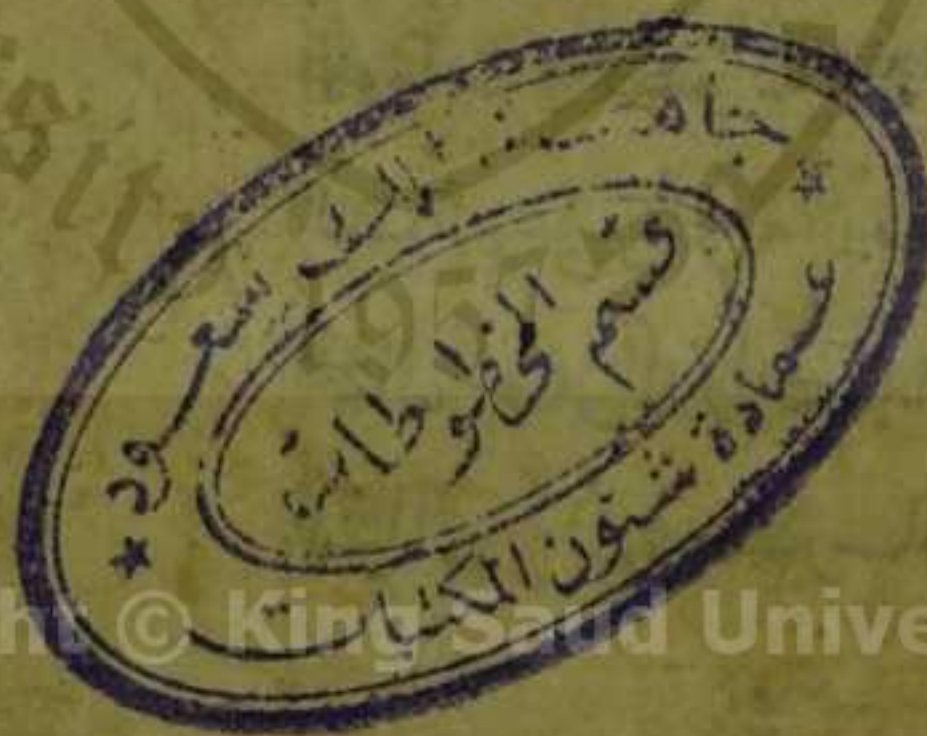 جامعة الملك سعود
قسم المخطوطات
عمادة شئون المكتبات
1957
ht © King Saud Unive